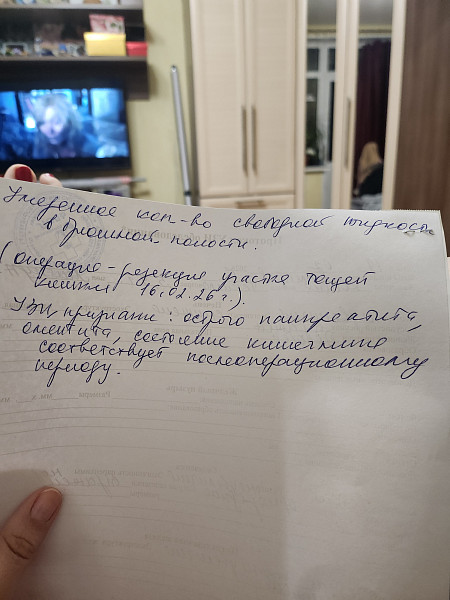 Умеренное кол-во свободной жидкости
в брюшной полости.
(операция - резекция участка тощей
кишки 16.02.26 г.)
УЗИ признаки: острого панкреатита,
оментита, состояние кишечника
соответствует послеоперационному
периоду.